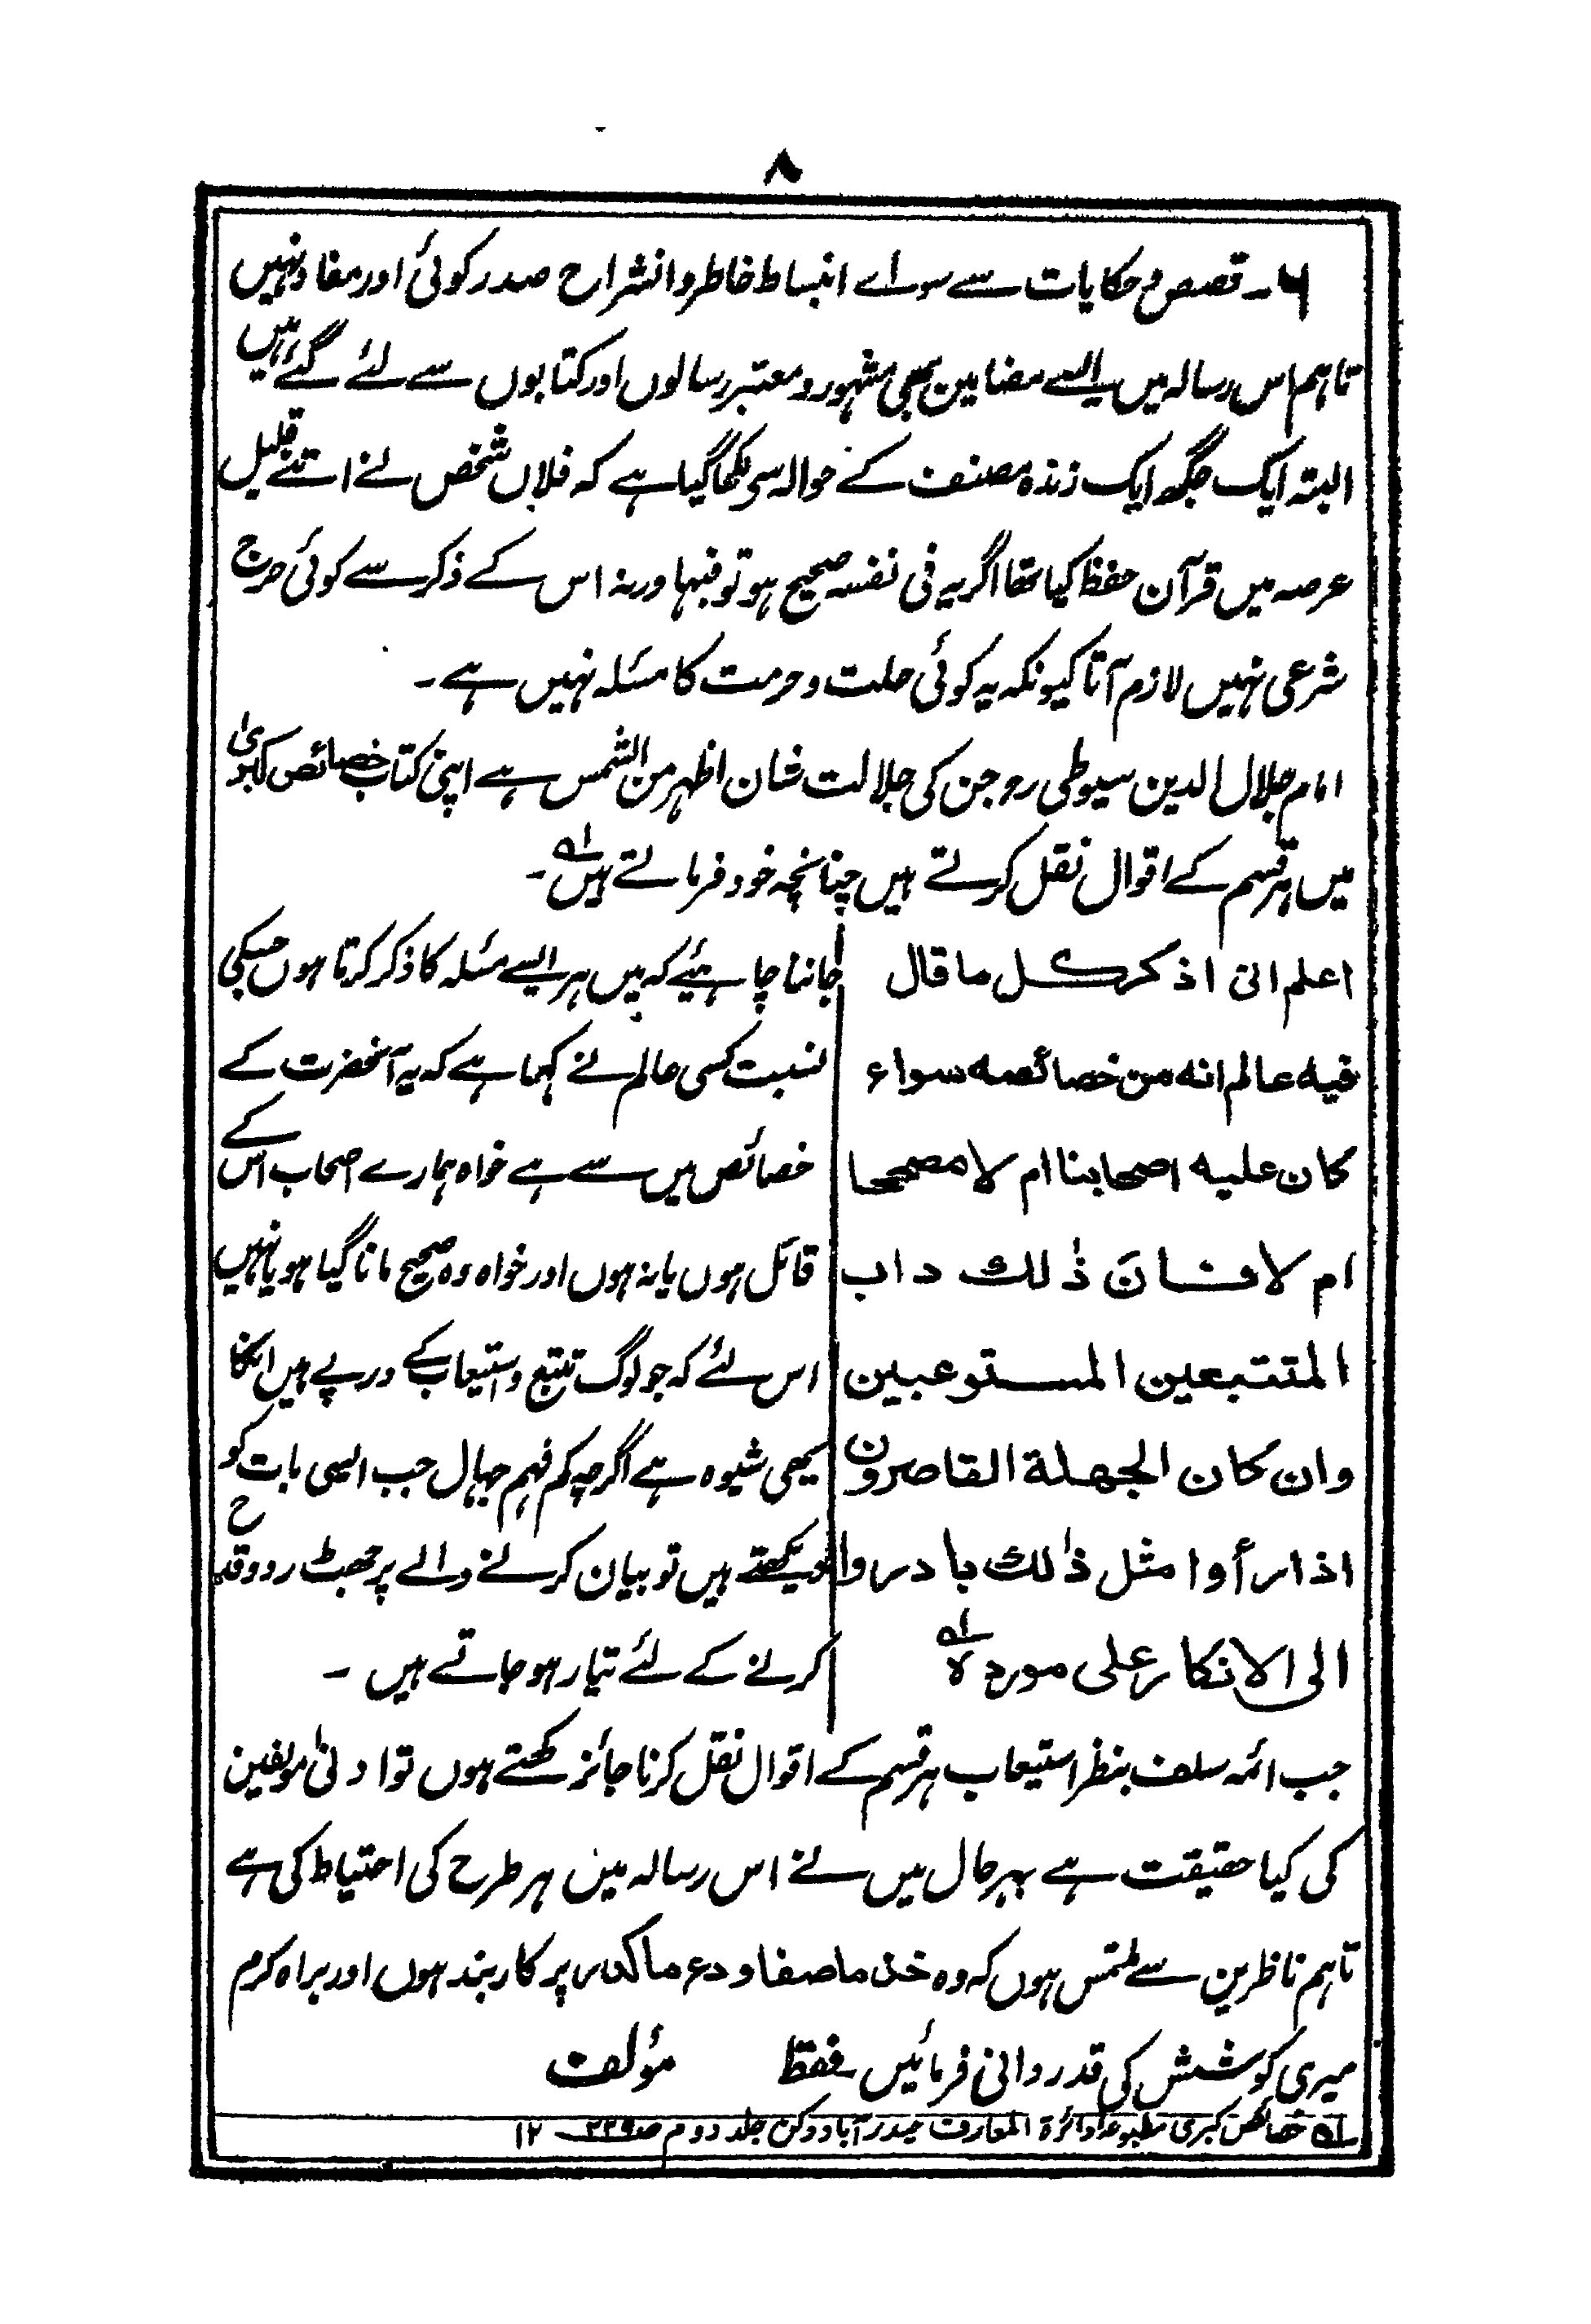 ۸
۶۔ قصص و حکایات سے سواے انبساط خاطر و انشراح صدر کوئی اور مفاد نہیں
تاہم اس رسالہ میں ایسے مضامین بھی مشہور و معتبر رسالوں اور کتابوں سے لئے گئے ہیں
البتہ ایک جگہ ایک زندہ مصنف کے حوالہ سی لکھا گیا ہے کہ فلاں شخص نے اتنے قلیل
عرصہ میں قرآن حفظ کیا تھا اگر یہ فی نفسہ صحیح ہو تو فبہا ورنہ اس کے ذکر سے کوئی حرج
شرعی نہیں لازم آتا کیونکہ یہ کوئی حلت و حرمت کا مسئلہ نہیں ہے۔
امام جلال الدین سیوطی رح جن کی جلالت شان اظہر من الشمس ہے اپنی کتاب خصائص کبریٰ
میں ہر قسم کے اقوال نقل کرتے ہیں چنانچہ خود فرماتے ہیں ؎۱۔
اعلم انی اذکر کل ما قال
فیه عالم انه من خصائصه سواء
کان علیه اصحابنا ام لا مصححا
ام لا فان ذٰلك داب
المتتبعین المستوعبین
وان کان الجهلة القاصرون
اذا رأوا مثل ذٰلك بادروا
الی الانکار علی موردہ ؎۱
جاننا چاہئیے کہ میں ہر ایسے مسئلہ کا ذکر کرتا ہوں جسکی
نسبت کسی عالم نے کہا ہے کہ یہ آنحضرت کے
خصائص میں سے ہے خواہ ہمارے اصحاب اس کے
قائل ہوں یا نہ ہوں اور خواہ وہ صحیح مانا گیا ہو یا نہیں
اس لئے کہ جو لوگ تتبع و استیعاب کے درپے ہیں انکا
یہی شیوہ ہے اگرچہ کم فہم جہال جب ایسی بات کو
دیکھتے ہیں تو بیان کرنے والے پر جھٹ رد و قدح
کرنے کے لئے تیار ہو جاتے ہیں ۔
جب ائمہ سلف بنظر استیعاب ہر قسم کے اقوال نقل کرنا جائز رکھتے ہوں تو ادنیٰ مؤلفین
کی کیا حقیقت ہے بہرحال میں نے اس رسالہ میں ہر طرح کی احتیاط کی ہے
تاہم ناظرین سے ملتمس ہوں کہ وہ خذ ما صفا و دع ما کدر پر کاربند ہوں اور براہ کرم
میری کوشش کی قدردانی فرمائیں۔ فقط مؤلف
؎۱ خصائص کبری مطبوعہ دائرۃ المعارف حیدرآباد دکن جلد دوم صـ۲۲۹ ۱۲